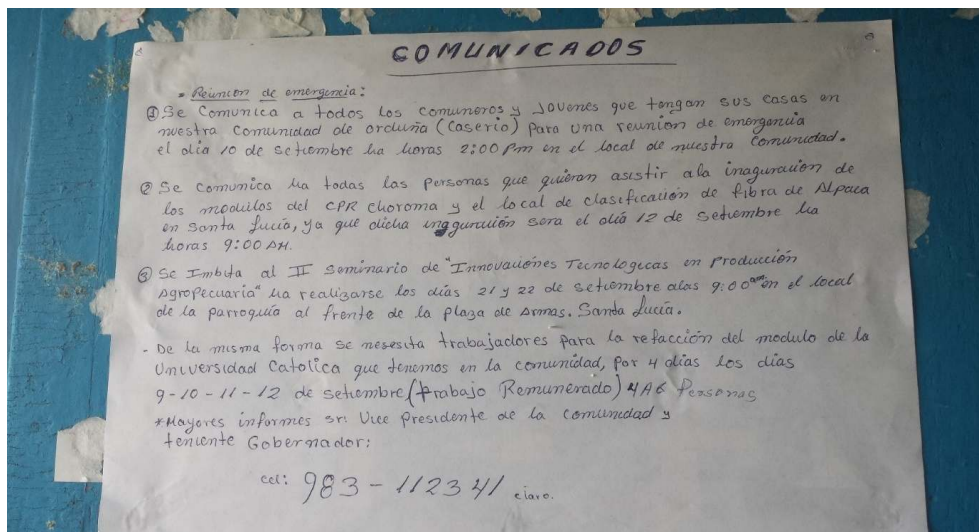 COMUNICADOS
• Reunion de emergencia:
① Se Comunica a todos los comuneros y Jovenes que tengan sus casas en
nuestra Comunidad de orduña (Caserio) para una reunión de emergencia
el dia 10 de setiembre ha horas 2:00 pm en el local de nuestra Comunidad.
② Se comunica ha todas las personas que quieran asistir ala inaguración de
los modulos del CPR choroma y el local de clasificación de fibra de Alpaca
en Santa Lucía, ya que dicha inaguración sera el día 12 de setiembre ha
horas 9:00 AM.
③ Se Imbita al II seminario de "Innovaciónes Tecnologicas en Producción
Agropecuaria" ha realizarse los días 21 y 22 de setiembre alas 9:00 am en el local
de la parroquia al frente de la plaza de Armas. Santa Lucía.
- De la misma forma se nesesita trabajadores para la refacción del modulo de la
Universidad Catolica que tenemos en la comunidad, por 4 dias los dias
9-10-11-12 de setiembre (trabajo Remunerado) 4 A 6 Personas
* Mayores informes sr: Vice Presidente de la comunidad y
teniente Gobernador:
cel: 983-112341 claro.